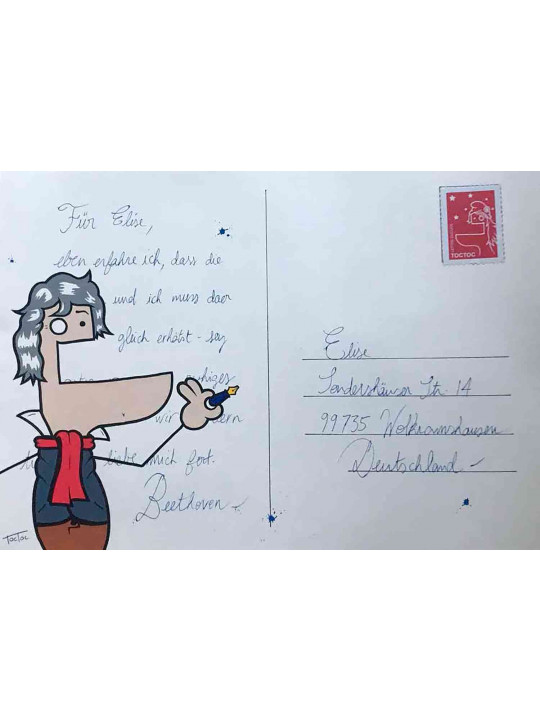 Für Elise,
eben erfahre ich, dass die
und ich muss daer
glich erhätst - say
uhiges
wir ern
liebe mich fort.
Beethoven
TocToc
TOCTOC
Elise
Sondershäuser Str. 14
99735 Wolkramshausen
Deutschland